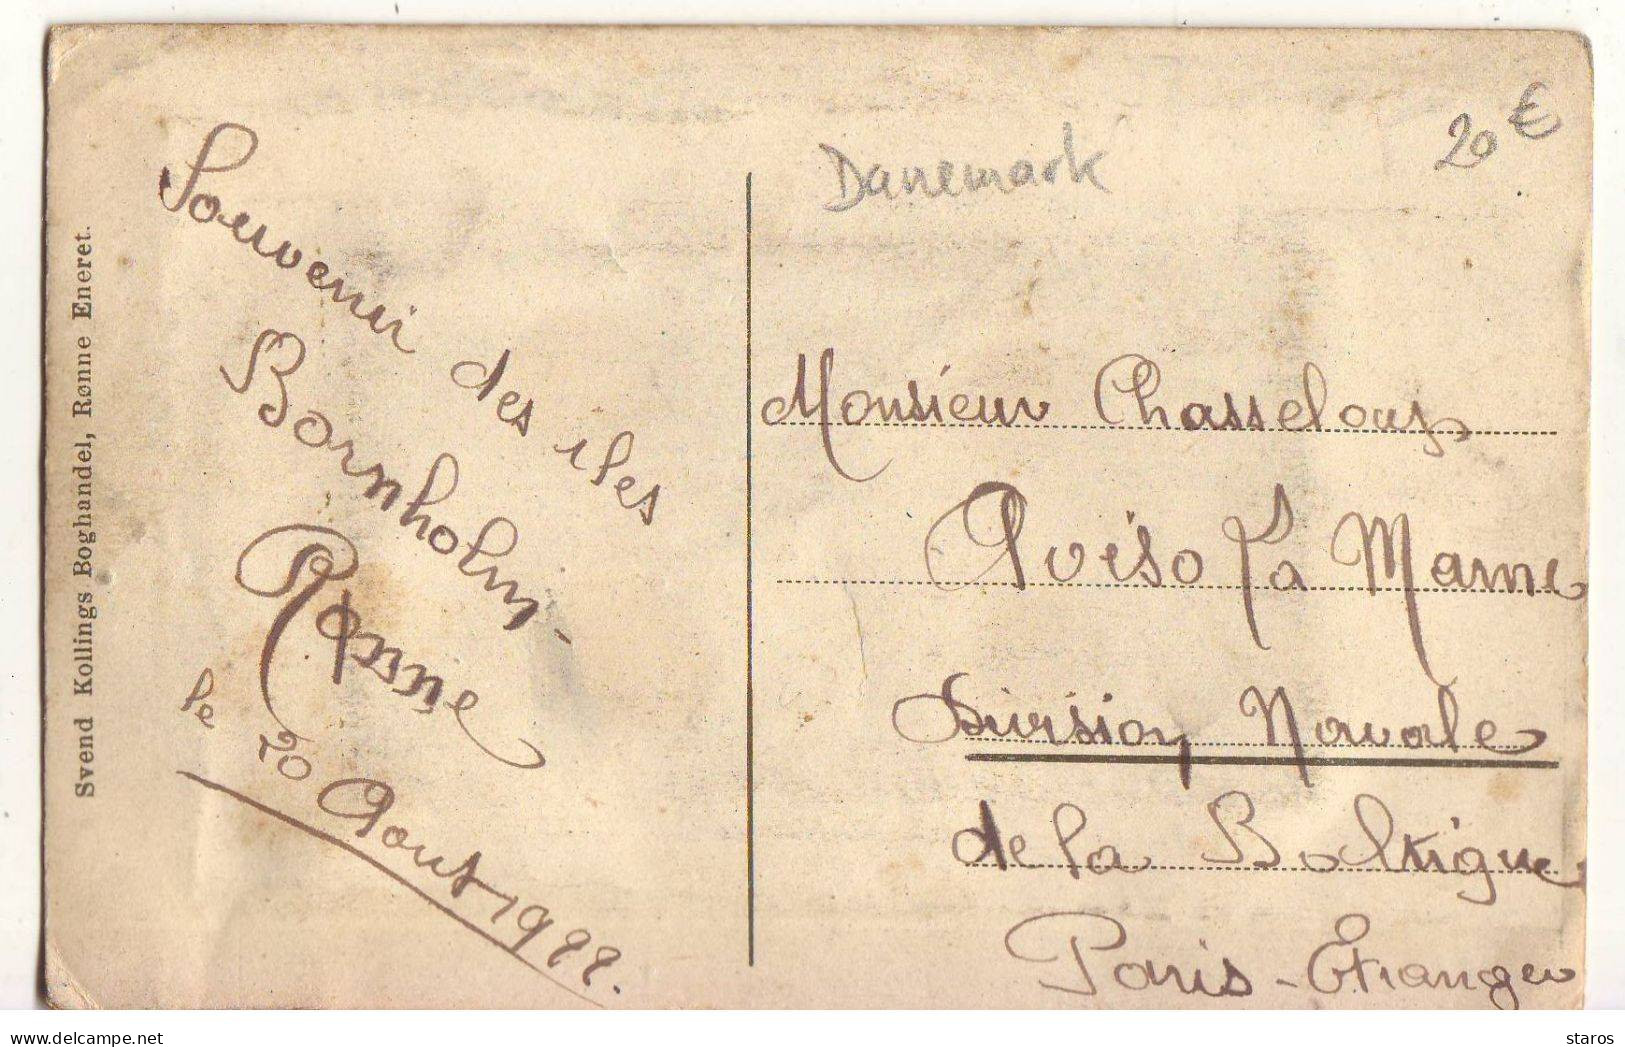 Svend Kollings Boghandel, Rønne Eneret.
Souvenir des iles
Bornholm
Ronne
le 20 Aout 1922.
Danemark
20 €
Monsieur Chasseloup
Aviso La Marne
Division Navale
de la Baltique
Paris - Étranger
delcampe.net
staros